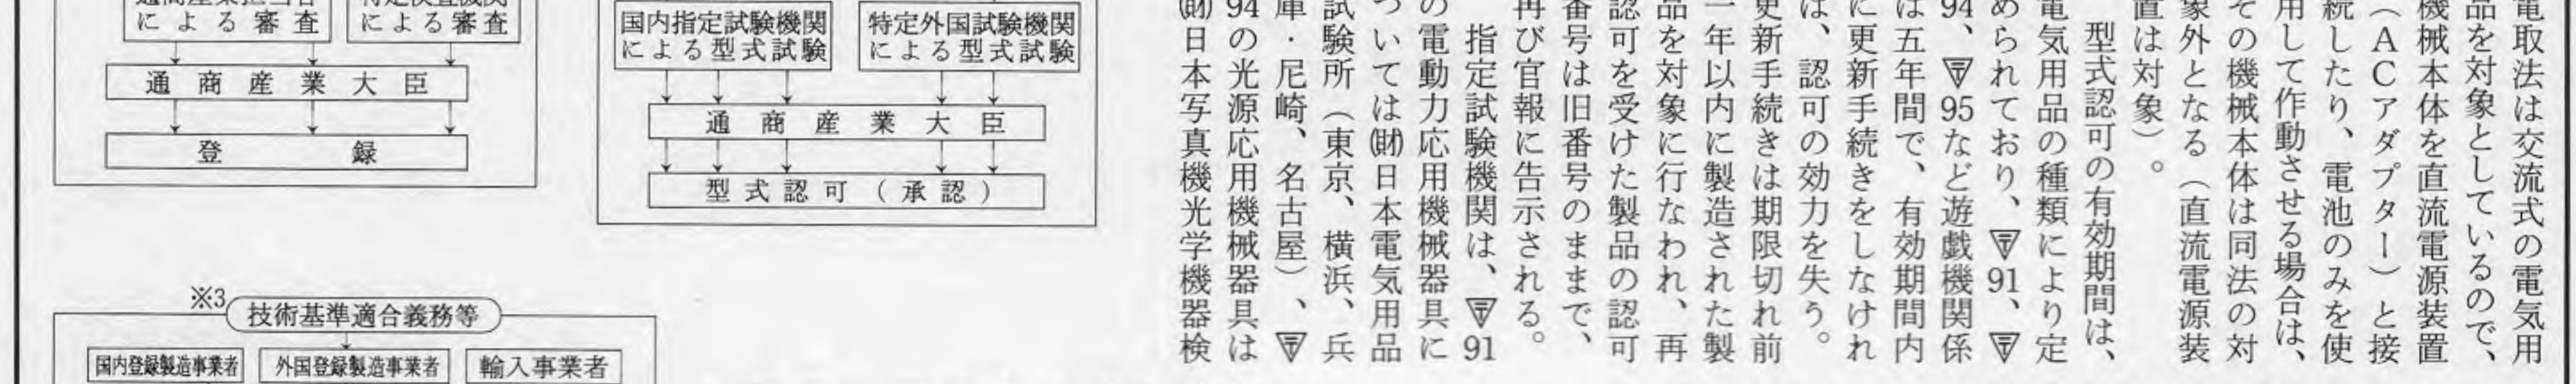 通商産業担当官
による審査
特定検査機関
による審査
通商産業大臣
登録
国内指定試験機関
による型式試験
特定外国試験機関
による型式試験
通商産業大臣
型式認可(承認)
※3
技術基準適合義務等
国内登録製造事業者
外国登録製造事業者
輸入事業者
電取法は交流式の電気用
品を対象としているので、
機械本体を直流電源装置
(ACアダプター)と接
続したり、電池のみを使
用して作動させる場合は、
その機械本体は同法の対
象外となる(直流電源装
置は対象)。
型式認可の有効期間は、
電気用品の種類により定
められており、▽91、▽
94、▽95など遊戯機関係
は五年間で、有効期間内
に更新手続きをしなけれ
ば、認可の効力を失う。
更新手続きは期限切れ前
一年以内に製造された製
品を対象に行なわれ、再
認可を受けた製品の認可
番号は旧番号のままで、
再び官報に告示される。
指定試験機関は、▽91
の電動力応用機械器具に
ついては㈶日本電気用品
試験所(東京、横浜、兵
庫・尼崎、名古屋)、▽
94の光源応用機械器具は
㈶日本写真機光学機器検